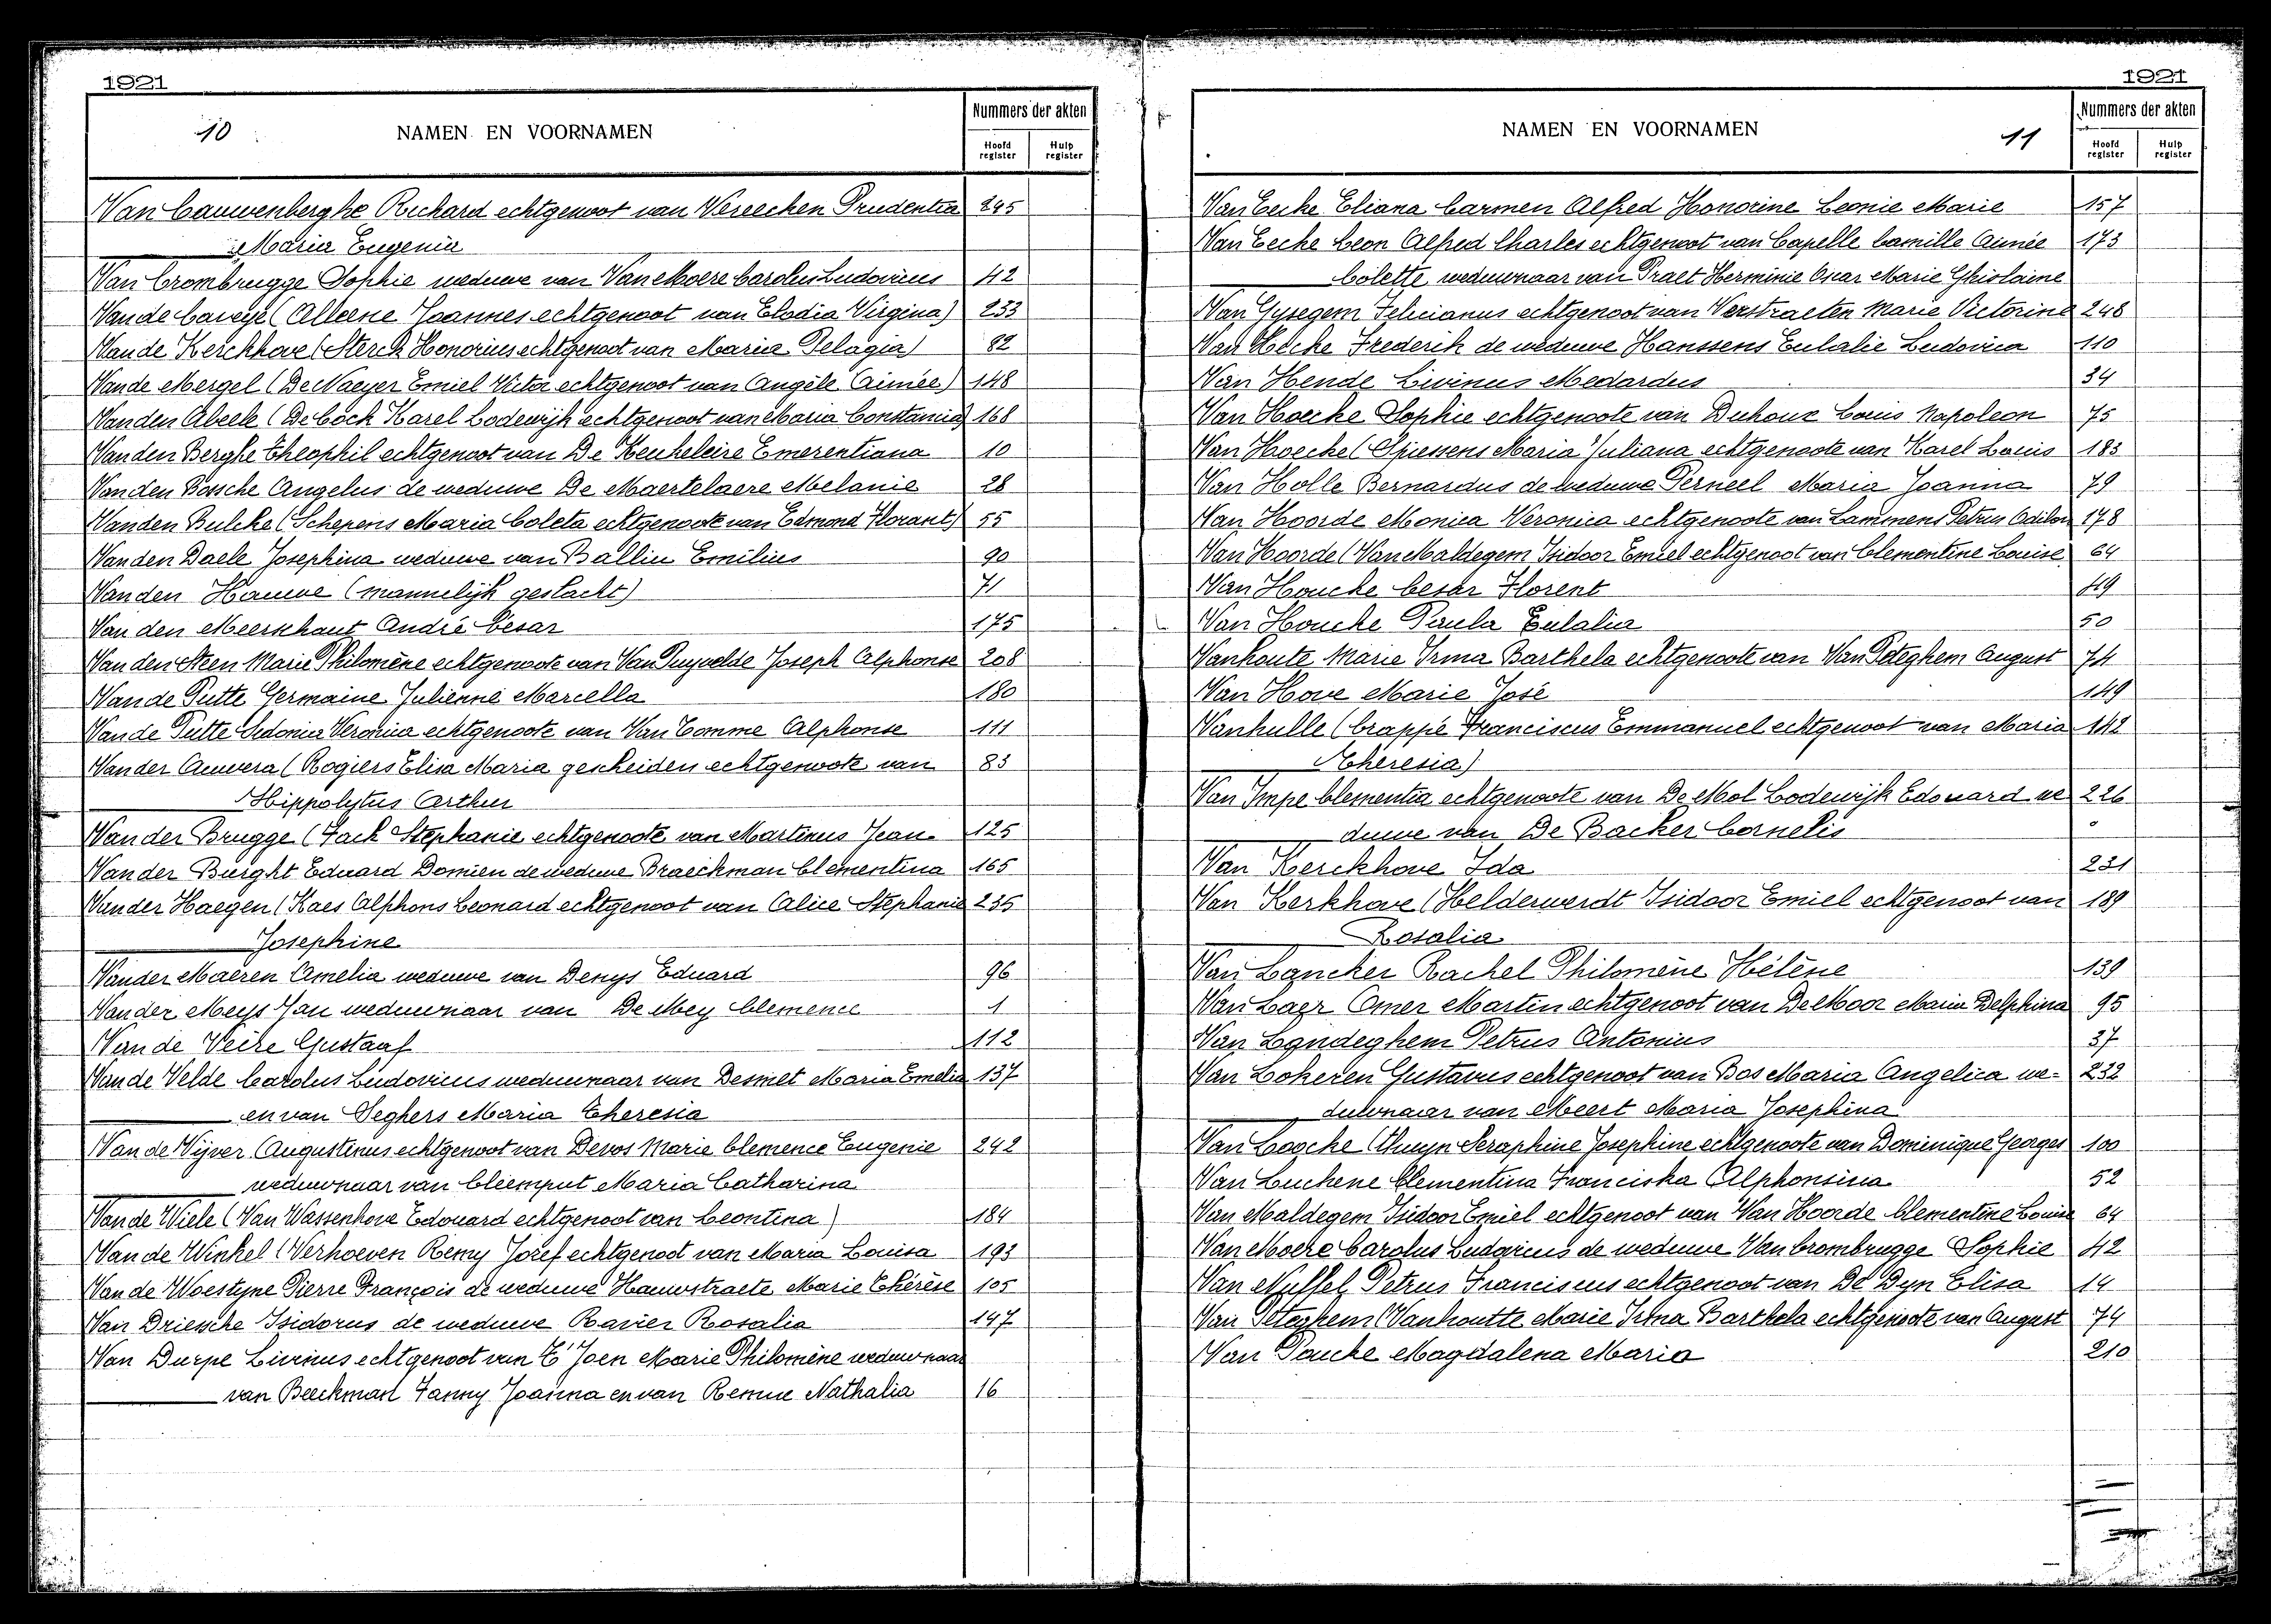 1921
10
NAMEN EN VOORNAMEN
Nummers der akten
Hoofd register
Hulp register
Van Cauwenberghe Richard echtgenoot van Vereecken Prudentia 245
Maria Eugenia
Van Crombrugge Sophie weduwe van Van Moere Carolus Ludovicus 42
Van de Caveye (Alleene Joannes echtgenoot van Elodia Virgina) 233
Van de Kerckhove (Sterck Honorius echtgenoot van Maria Pelagia) 82
Van de Mergel (De Naeyer Emiel Victor echtgenoot van Angèle Aimée) 148
Van den Abeele (De Cock Karel Lodewijk echtgenoot van Maria Constancia) 168
Van den Berghe Theophil echtgenoot van De Keukeleire Emerentiana 10
Van den Bossche Angelus de weduwe De Maertelaere Melanie 28
Van den Bulcke (Schepens Maria Coleta echtgenoote van Edmond Florant) 55
Van den Daele Josephina weduwe van Ballin Emilius 90
Van den Hauwe (mannelijk geslacht) 71
Van den Meerschaut André César 175
Van den Steen Marie Philomène echtgenoote van Van Puyvelde Joseph Alphonse 208
Van de Putte Germaine Julienne Marcella 180
Van de Putte Sidonia Veronica echtgenoote van Van Tomme Alphonse 111
Van der Auwera (Rogiers Elisa Maria gescheiden echtgenoote van 83
Hippolytus Arthur
Van der Brugge (Fack Stephanie echtgenoote van Martinus Jean 125
Van der Burght Eduard Domien de weduwe Braeckman Clementina 165
Van der Haegen (Kaes Alphons Leonard echtgenoot van Alice Stephanie 235
Josephine
Van der Maeren Amelia weduwe van Denys Eduard 96
Van der Meys Jan weduwnaar van De Mey Clemence 1
Van de Veire Gustaaf 112
Van de Velde Carolus Ludovicus weduwnaar van Desmet Maria Emelia 137
en van Seghers Maria Theresia
Van de Vijver Augustinus echtgenoot van Devos Marie Clemence Eugenie 242
weduwnaar van Cleemput Maria Catharina
Van de Wiele (Van Wassenhove Edouard echtgenoot van Leontina) 184
Van de Winkel (Verhoeven Remy Jozef echtgenoot van Maria Louisa 193
Van de Woestyne Pierre François de weduwe Hauwstraete Marie Thérèse 105
Van Driesche Isidorus de weduwe Ravier Rosalia 147
Van Durpe Livinus echtgenoot van T'Joen Marie Philomène weduwnaar
van Beeckman Fanny Joanna en van Remue Nathalia 16
1921
NAMEN EN VOORNAMEN
11
Nummers der akten
Hoofd register
Hulp register
Van Eecke Eliana Carmen Alfred Honorine Leonie Marie 157
Van Eecke Leon Alfred Charles echtgenoot van Capelle Camille Aimée 173
Colette weduwnaar van Praet Herminie Oscar Marie Ghislaine
Van Gysegem Felicianus echtgenoot van Verstraeten Marie Victorine 248
Van Hecke Frederik de weduwe Hanssens Eulalie Ludovica 110
Van Hende Livinus Medardus 34
Van Hoecke Sophie echtgenoote van Duhoux Louis Napoleon 75
Van Hoecke (Spiessens Maria Juliana echtgenoote van Karel Louis 183
Van Holle Bernardus de weduwe Perneel Maria Joanna 79
Van Hoorde Monica Veronica echtgenoote van Lammens Petrus Odilon 178
Van Hoorde (Van Maldegem Isidoor Emiel echtgenoot van Clementine Louise 64
Van Houcke Cesar Florent 49
Van Houcke Paula Eulalia 50
Vanhoute Marie Irma Barthela echtgenoote van Van Peteghem August 74
Van Hove Marie José 149
Vanhulle (Crappé Franciscus Emmanuel echtgenoot van Maria 142
Theresia)
Van Impe Clementia echtgenoote van De Mol Lodewijk Edouard we 226
duwe van De Backer Cornelis
Van Kerckhove Ida 231
Van Kerkhove (Helderweirdt Isidoor Emiel echtgenoot van 189
Rosalia
Van Lancker Rachel Philomène Hélène 139
Van Laer Omer Martin echtgenoot van De Moor Maria Delphina 95
Van Landeghem Petrus Antonius 37
Van Lokeren Gustavus echtgenoot van Bos Maria Angelica we- 232
duwnaar van Meert Maria Josephina
Van Loocke (Thuyn Seraphine Josephine echtgenoote van Dominique Georges 100
Van Luchene Clementina Franciska Alphonsina 52
Van Maldegem Isidoor Emiel echtgenoot van Van Hoorde Clementine Louise 64
Van Moere Carolus Ludovicus de weduwe Van Crombrugge Sophie 42
Van Nuffel Petrus Franciscus echtgenoot van De Dyn Elisa 14
Van Peteghem (Vanhoutte Marie Irma Barthela echtgenoote van August 74
Van Poucke Magdalena Maria 210